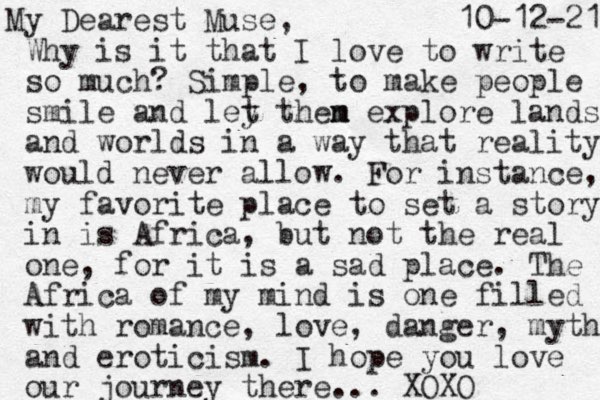 My Dearest Muse, 10-12-21
Why is it that I love to write
so much? Simple, to make people
smile and let them explore lands
and worlds in a way that reality
would never allow. For instance,
my favorite place to set a story
in is Africa, but not the real
one, for it is a sad place. The
Africa of my mind is one filled
with romance, love, danger, myth
and eroticism. I hope you love
our journey there... XOXO